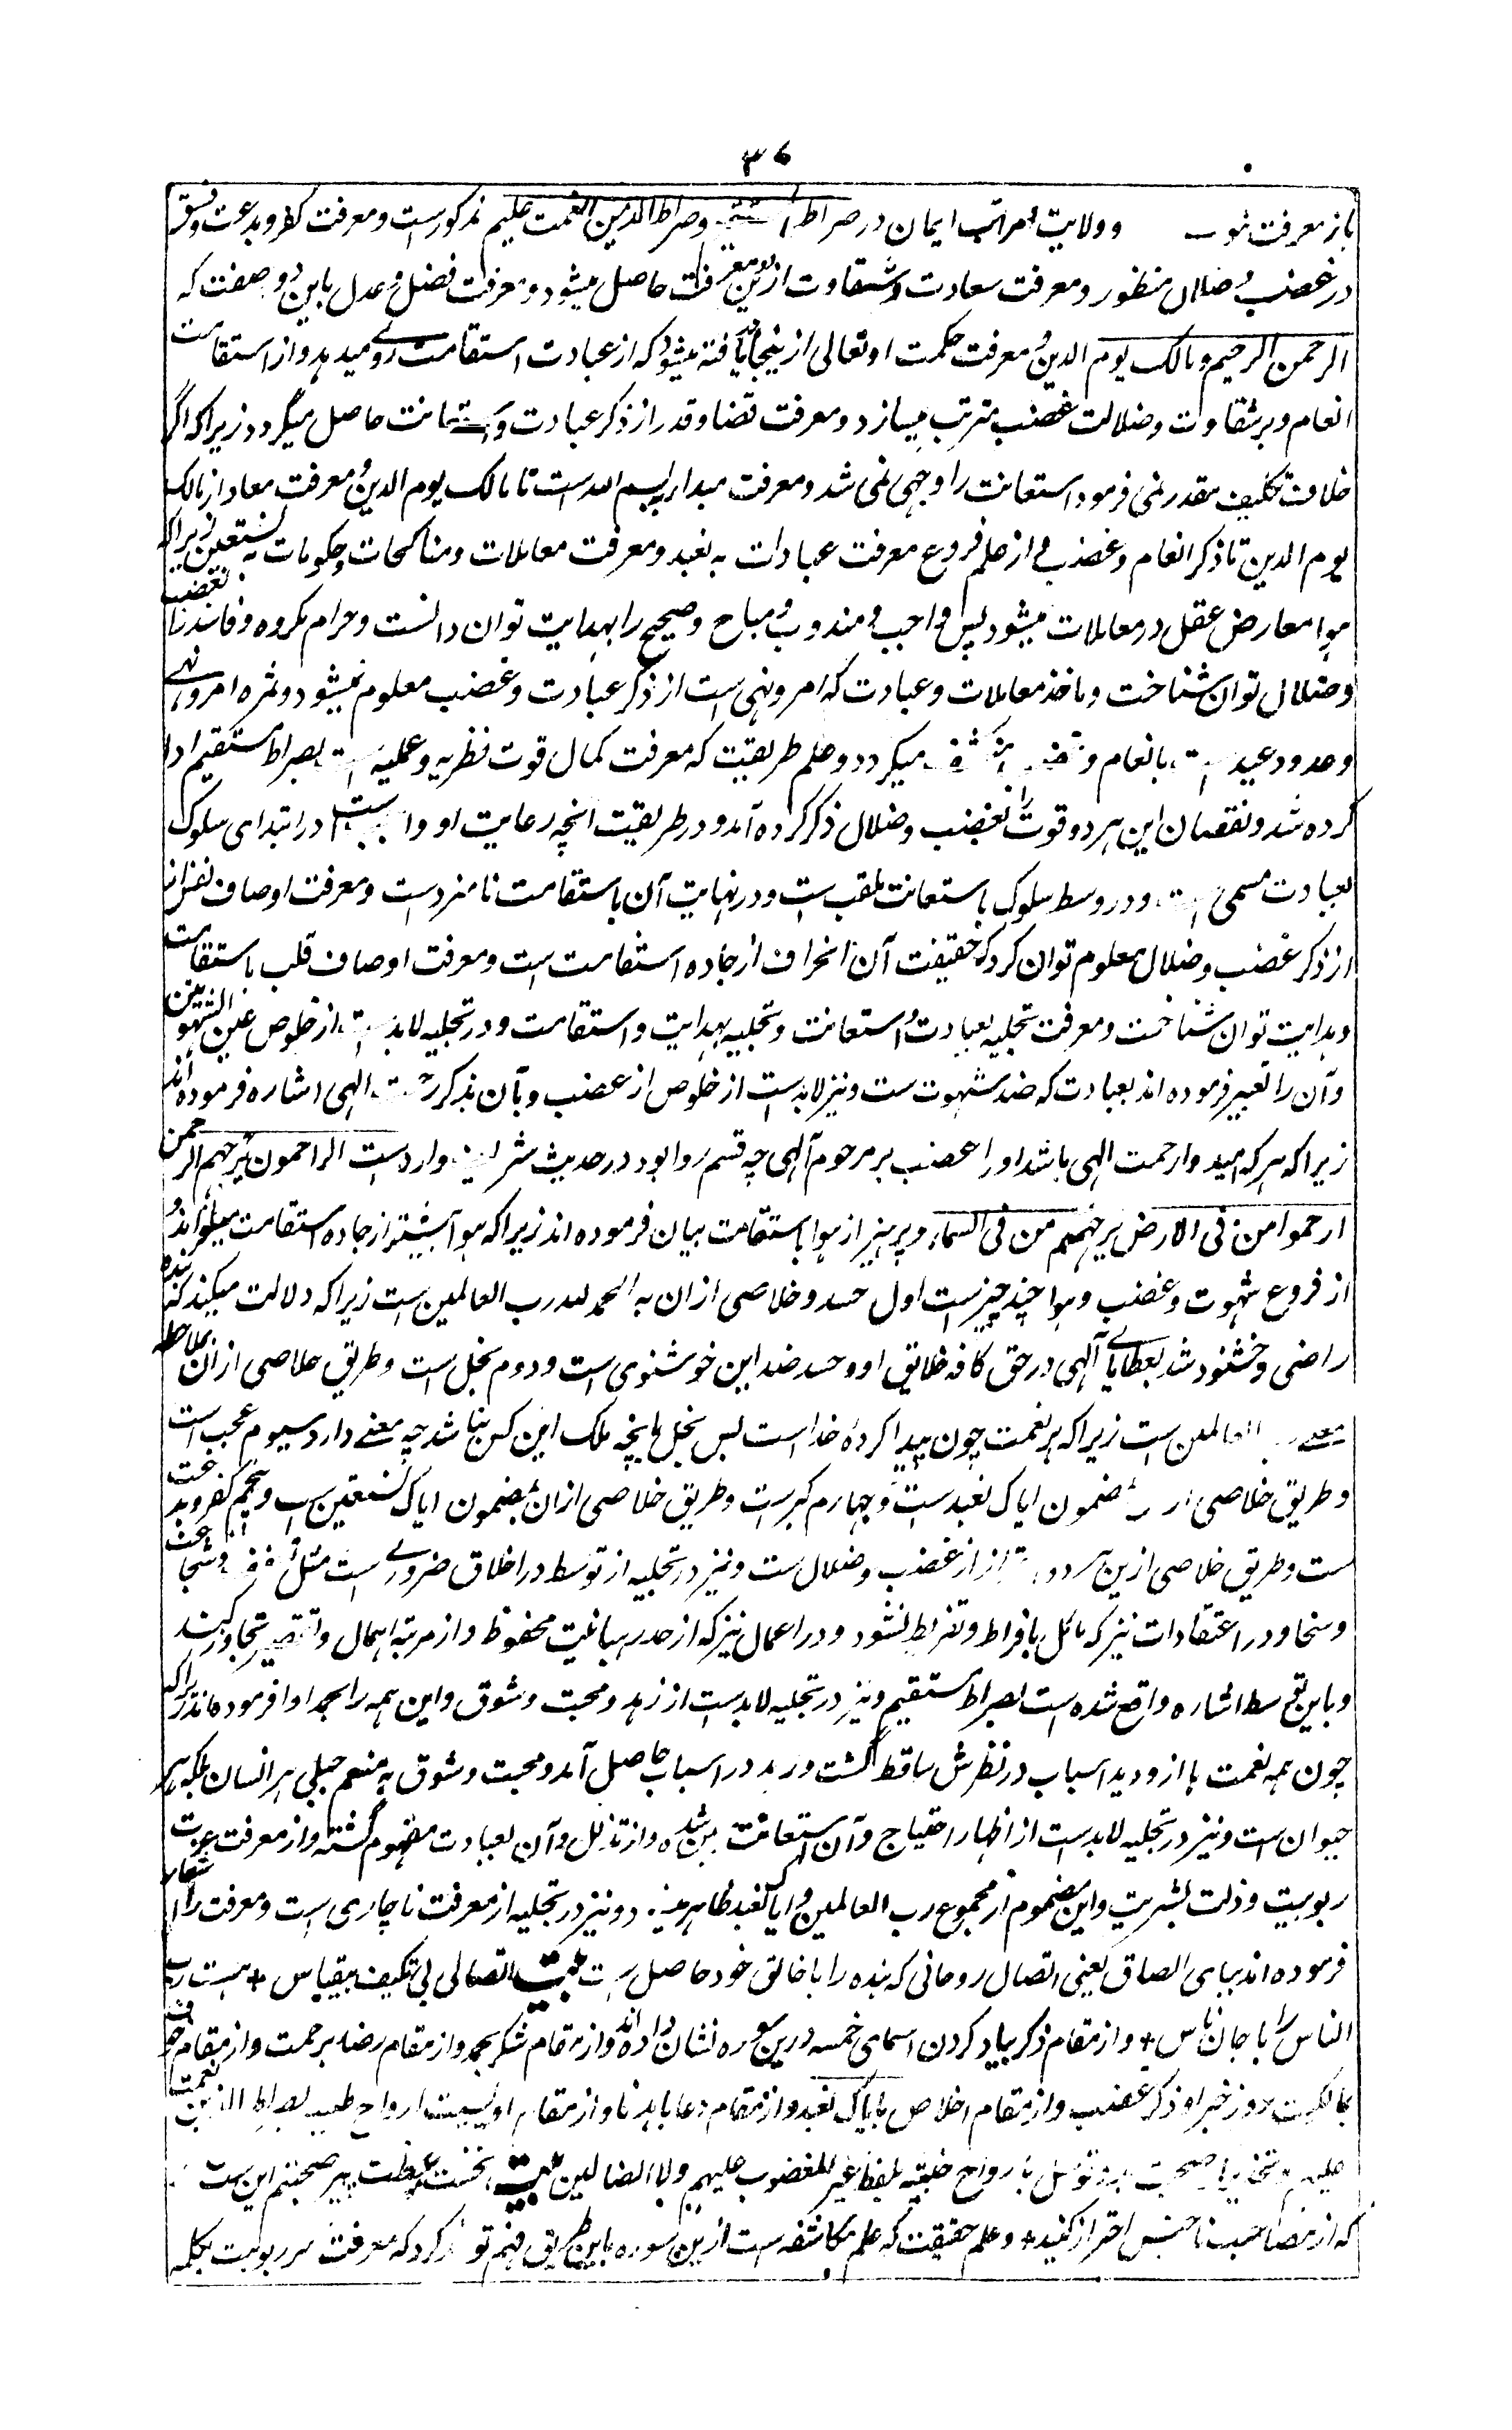 ۳۶
باز معرفت وولایت و مراتب ایمان در صراط المستقیم و صراط الذین انعمت علیهم مذکورست و معرفت کفر و بدعت و فسق
در غضب و ضلال منظور و معرفت سعادت و شقاوت ازین دو معرفت حاصل میشود و معرفت فضل و عدل باین دو صفت که
الرحمن الرحیم و مالک یوم الدین و معرفت حکمت او تعالی ازینجا یافته میشود که از عبادت استقامت روی میدهد و از استقامت
انعام و بر شقاوت و ضلالت غضب مترتب میسازد و معرفت قضا و قدر از ذکر عبادت و استعانت حاصل میگردد زیراکه اگر
خلاف تکلیف مقدر نمی فرمود استعانت را وجهی نمی شد و معرفت مبدا از بسم الله است تا مالک یوم الدین و معرفت معاد از مالک
یوم الدین تا ذکر انعام و غضب و از علم فروع معرفت عبادات به نعبد و معرفت معاملات و مناکحات و حکومات به نستعین زیراکه
هوا معارض عقل در معاملات میشود پس واجب و مندوب و مباح و صحیح را بهدایت توان دانست و حرام و مکروه و فاسد را بغضب
و ضلال توان شناخت و ماخذ معاملات و عبادت که امر و نهی است از ذکر عبادت و غضب معلوم میشود و ثمره امر و نهی
وعد و وعید ست بانعام و غضب منکشف میگردد و علم طریقت که معرفت کمال قوت نظریه و عملیه است بصراط مستقیم ادا
کرده شد و نقصان این هر دو قوت را بغضب و ضلال ذکر کرده آمد و در طریقت انچه رعایت او واجب است در ابتدای سلوک
بعبادت مسمی است و در وسط سلوک باستعانت ملقب است و در نهایت آن باستقامت نامزدست و معرفت اوصاف نفس را
از ذکر غضب و ضلال معلوم توان کرد که حقیقت آن انحراف از جاده استقامت است و معرفت اوصاف قلب باستقامت
و هدایت توان شناخت و معرفت تخلیه بعبادت و استعانت و تحلیه بهدایت و استقامت و در تخلیه لابد ست از خلوص عین الشهوتین
و آن را تعبیر فرموده اند بعبادت که ضد شهوت ست و نیز لابدست از خلوص از غضب و بآن بذکر رحمت الهی اشاره فرموده اند
زیراکه هرکه امیدوار رحمت الهی باشد او را غضب بر مرحوم آلهی چه قسم روا بود و در حدیث شریف وارد ست الراحمون یرحمهم الرحمن
ارحموا من فی الارض یرحمکم من فی السماء و پرهیز از هوا باستقامت بیان فرموده اند زیراکه هوا بیشتر از جاده استقامت میلغزاند و
از فروع شهوت و غضب و هوا چند چیزست اول حسد و خلاصی ازان به الحمد لله رب العالمین ست زیراکه دلالت میکند که بنده
راضی و خشنود شد بعطایای آلهی در حق کافه خلایق او و حسد ضد این خوشنودی است و دوم بخل ست و طریق خلاصی ازان بملاحظه
معنی رب العالمین ست زیراکه هر نعمت چون پیدا کردهٔ خداست پس بخل بانچه ملک این کس نباشد چه معنی دارد سیوم عجب است
و طریق خلاصی ازان مضمون ایاک نعبد ست و چهارم کبرست و طریق خلاصی ازان بمضمون ایاک نستعین ست و پنجم کفر و بدعت
ست و طریق خلاصی ازین هر دو احتراز از غضب و ضلال ست و نیز در تحلیه از توسط در اخلاق ضروری است مثل عفت و شجاعت
و سخا و در اعتقادات نیز که مائل بافراط و تفریط نشود و در اعمال نیز که از حد رهبانیت محفوظ و از مرتبه اهمال و تقصیر تجاوز کند
و باین توسط اشاره واقع شده است بصراط مستقیم و نیز در تحلیه لابدست از زهد و محبت و شوق و این همه را بحمد ادا فرموده اند زیراکه
چون همه نعمت ها ازو دید اسباب در نظرش ساقط گشت و زهد در اسباب حاصل آمد و محبت و شوق به منعم جبلی هر انسان بلکه هر
حیوان ست و نیز در تحلیه لابدست از اظهار احتیاج و آن استعانت مبین شده و از تذلل و آن بعبادت مفهوم گشته و از معرفت عزت
ربوبیت و ذلت بشریت و این مضموم از مجموع رب العالمین و ایاک نعبد ظاهر میشود و نیز در تحلیه از معرفت ناچاری است و معرفت را اشعار
فرموده اند ببای الصاق یعنی اتصال روحانی که بنده را با خالق خود حاصل ست بیت اتصالی بی تکیف بیقیاس + هست رب
الناس را با جان ناس + و از مقام ذکر بیاد کردن اسمای خمسه درین سوره نشان داده اند و از مقام شکر بحمد و از مقام رضا برحمت و از مقام خوف
بمالکیت روز جزا و ذکر غضب و از مقام اخلاص بایاک نعبد و از مقام دعا باهدنا و از مقام اویسیت ارواح طیبه بصراط الذین انعمت
علیهم صحبت بد و توسل بارواح خبیثه بلفظ غیر المغضوب علیهم ولا الضالین بیت نخست موعظت پیر صحبتم این ست
که از مصاحب ناجنس احتراز کنید + و علم حقیقت که علم مکاشفه ست ازین سوره باین طریق فهم توان کرد که معرفت سر ربوبیت بکلمه